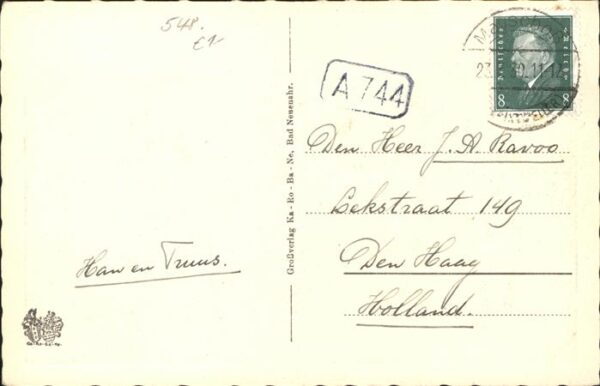 548.
£1-
A 744
Deutsches Reich
8 8
23. 30.11-12
Den Heer J. A. Ravoo
Lekstraat 149
Den Haag
Holland.
Han en Truus.
Großverlag Ka - Ro - Ba - Ne, Bad Neuenahr.